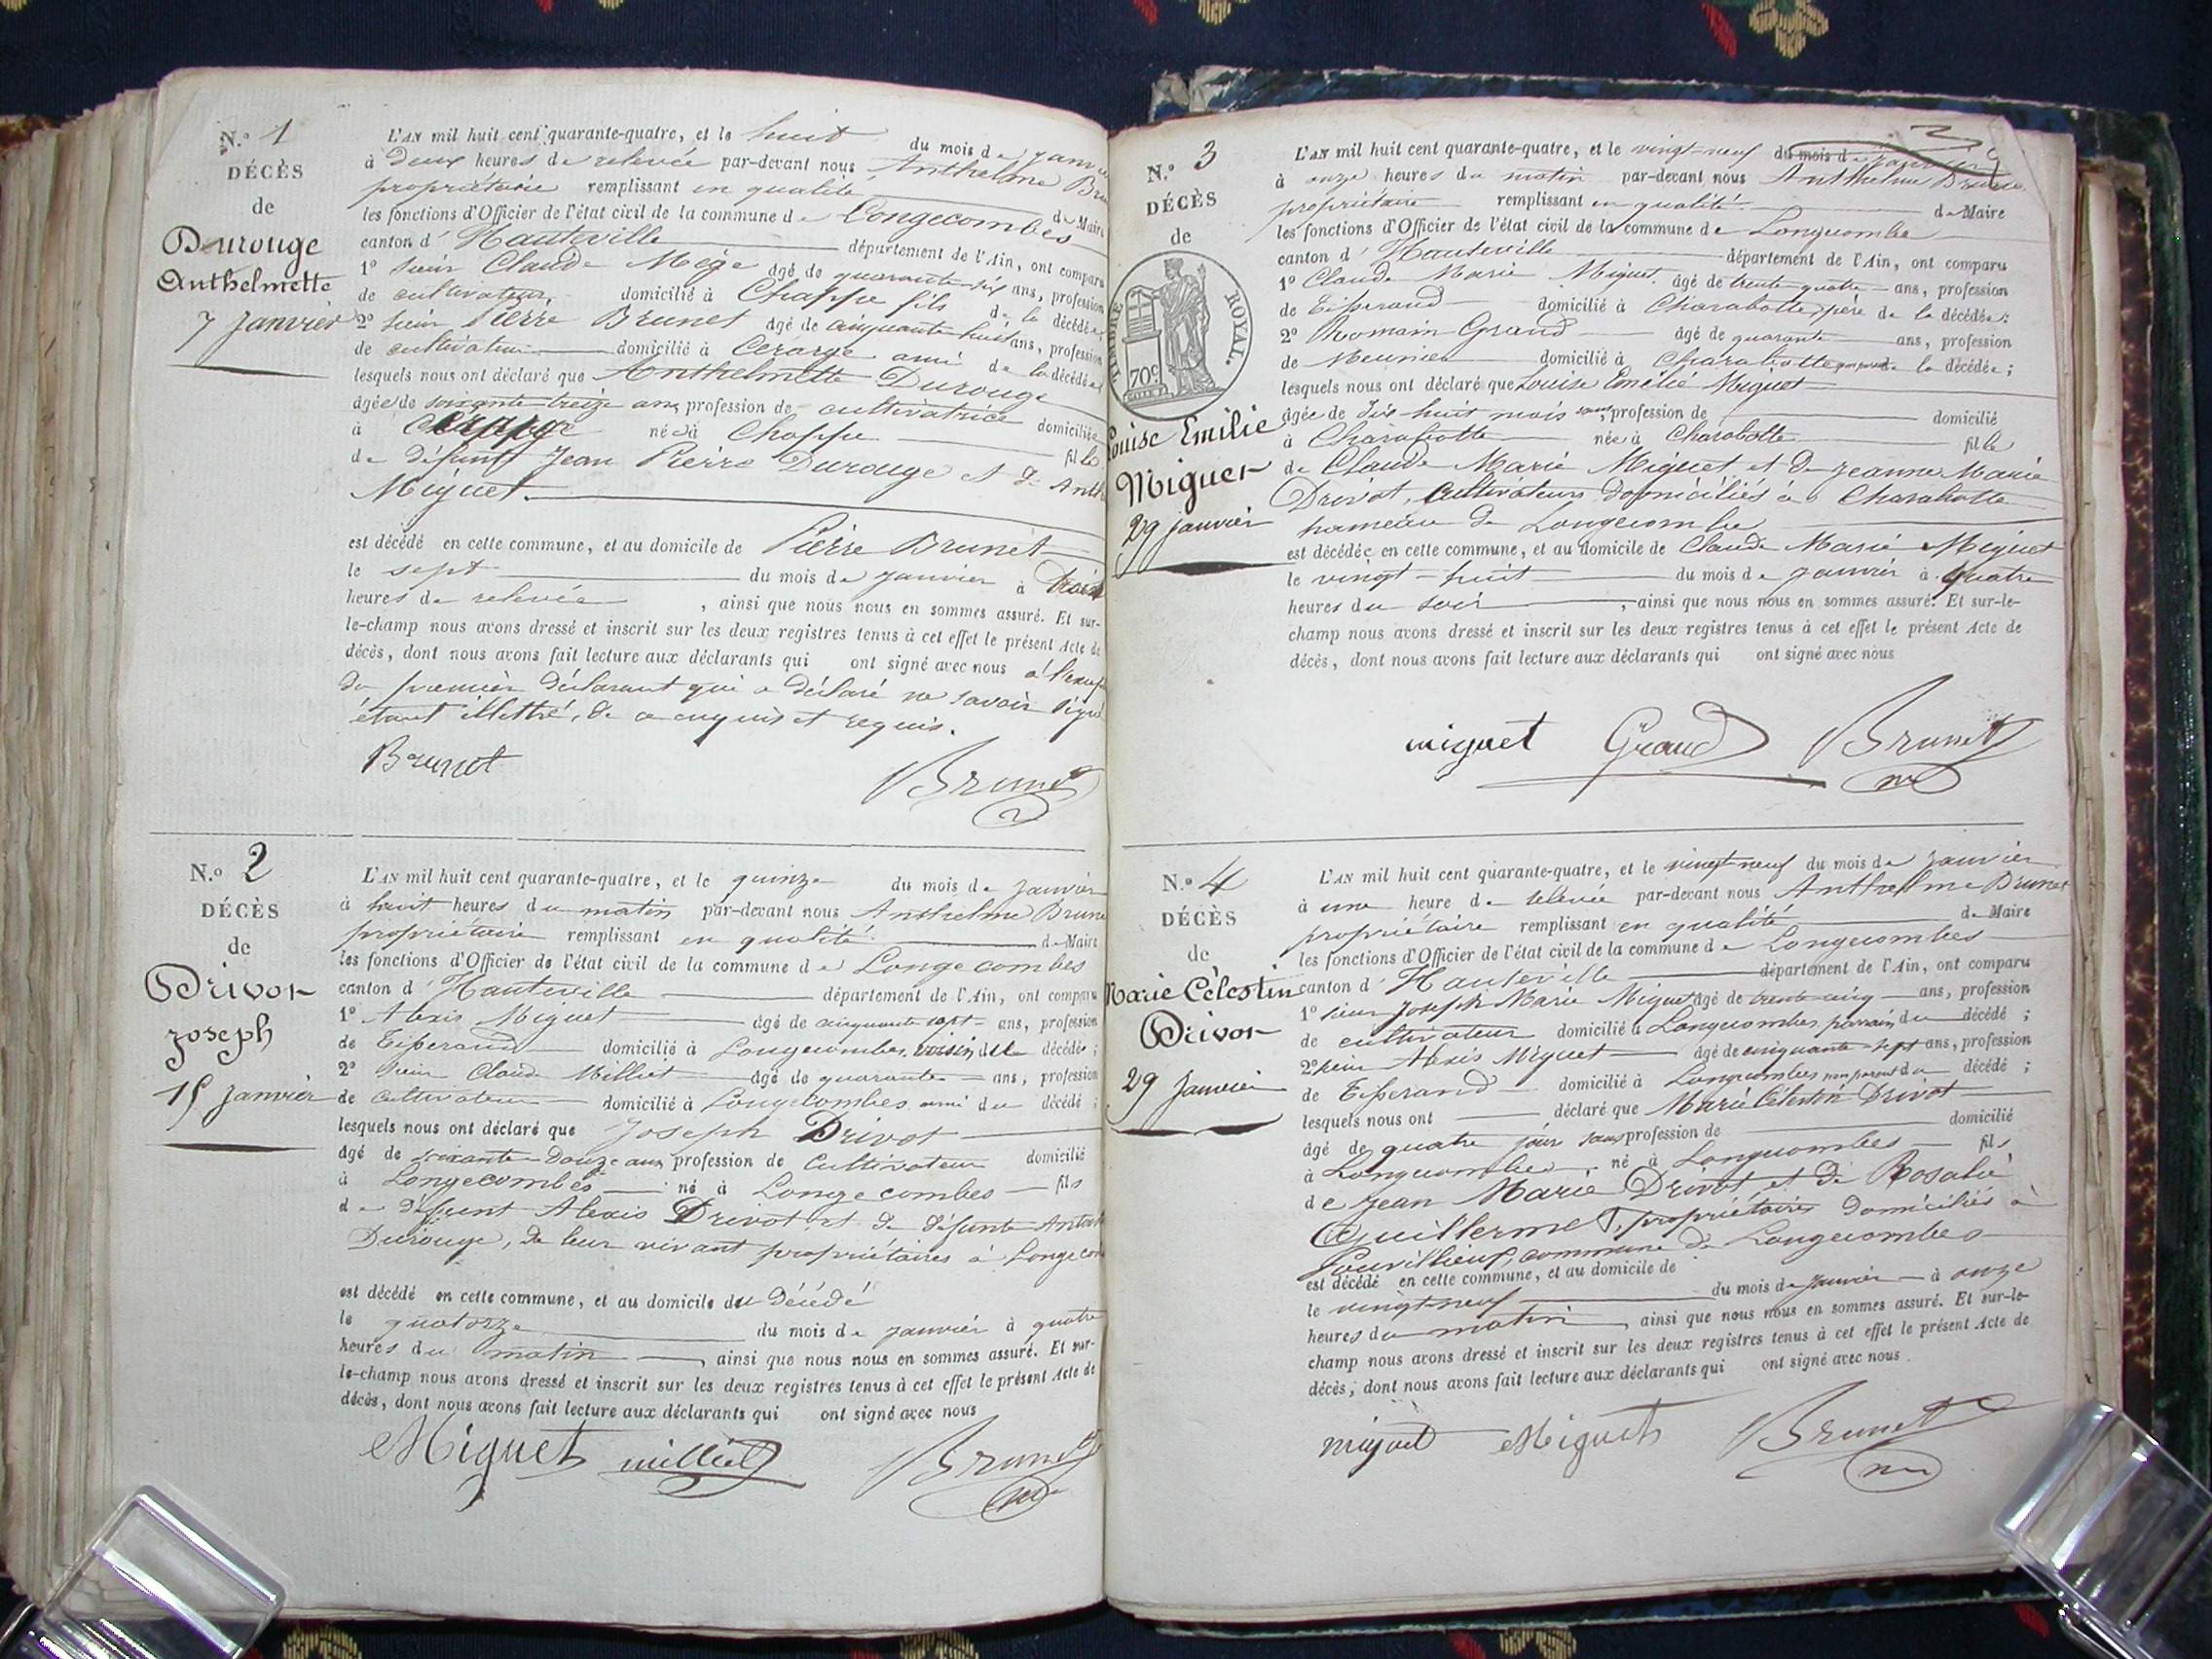 N.o 1
DÉCÈS
de
Durouge
Anthelmette
7 Janvier
L'AN mil huit cent quarante-quatre, et le huit du mois de Janv
à deux heures de relevée par-devant nous Anthelme Bru
propriétaire remplissant en qualité de Maire
les fonctions d'Officier de l'état civil de la commune de Longecombes
canton d'Hauteville département de l'Ain, ont comparu
1o sieur Claude Mége âgé de quarante-six ans, profession
de cultivateur, domicilié à Chappe fils de la décédée
2o sieur Pierre Brunet âgé de cinquante huit ans, profession
de cultivateur domicilié à Cerarge ami de la décédée
lesquels nous ont déclaré que Anthelmette Durouge
âgée de soixante-treize ans profession de cultivatrice domiciliée
à née à Chappe fille
de défunt Jean Pierre Durouge et d' Anth
Miguet.
est décédé en cette commune, et au domicile de Pierre Brunet
le sept du mois de Janvier à trois
heures de relevée , ainsi que nous nous en sommes assuré. Et sur-
le-champ nous avons dressé et inscrit sur les deux registres tenus à cet effet le présent Acte de
décès, dont nous avons fait lecture aux déclarants qui ont signé avec nous à l'excep
du premier déclarant qui a déclaré ne savoir signé
étant illettré, de ce enquis et requis.
Brunet Brunet
N.o 2
DÉCÈS
de
Drivon
Joseph
15 Janvier
L'AN mil huit cent quarante-quatre, et le quinze du mois de Janvier
à huit heures du matin par-devant nous Anthelme Brune
propriétaire remplissant en qualité de Maire
les fonctions d'Officier de l'état civil de la commune de Longecombes
canton d'Hauteville département de l'Ain, ont comparu
1o Alexis Miguet âgé de cinquante sept ans, profession
de Tisserand domicilié à Longecombes, voisin de décédé ;
2o sieur Claude Milliet âgé de quarante ans, profession
de cultivateur domicilié à Longecombes ami du décédé ;
lesquels nous ont déclaré que Joseph Drivot
âgé de soixante-Douze ans profession de Cultivateur domicilié
à Longecombes né à Longecombes fils
de défunt Alexis Drivot et de défunte
Durouge, de leur vivant propriétaires à Longecom
est décédé en cette commune, et au domicile du Décédé
le quatorze du mois de Janvier à quatre
heures du matin , ainsi que nous nous en sommes assuré. Et sur-
le-champ nous avons dressé et inscrit sur les deux registres tenus à cet effet le présent Acte de
décès, dont nous avons fait lecture aux déclarants qui ont signé avec nous
Miguet milliet Brunet
N.o 3
DÉCÈS
de
TIMBRE ROYAL.
70c
Louise Emilie
Miguet
29 janvier
L'AN mil huit cent quarante-quatre, et le vingt-neuf du mois de Janvier
à onze heures du matin par-devant nous Anthelme Brunet
propriétaire remplissant en qualité de Maire
les fonctions d'Officier de l'état civil de la commune de Longecombe
canton d'Hauteville département de l'Ain, ont comparu
1o Claude Marie Miguet âgé de trente-quatre ans, profession
de Tisserand domicilié à Charabotte, père de la décédée ;
2o Romain Grand âgé de quarante ans, profession
de Meunier domicilié à Charabotte de la décédée ;
lesquels nous ont déclaré que Louise Emélie Miguet
âgée de dix-huit mois sans profession de domicilié
à Charabotte née à Charabotte fille
de Claude Marie Miguet et de Jeanne Marie
Drivot, Cultivateurs domiciliés à Charabotte
hameau de Longecombe
est décédée en cette commune, et au domicile de Claude Marie Miguet
le vingt-huit du mois de Janvier à quatre
heures du soir , ainsi que nous nous en sommes assuré. Et sur-le-
champ nous avons dressé et inscrit sur les deux registres tenus à cet effet le présent Acte de
décès, dont nous avons fait lecture aux déclarants qui ont signé avec nous
miguet Grand Brunet
N.o 4
DÉCÈS
de
Marie Célestin
Drivon
29 Janvier
L'AN mil huit cent quarante-quatre, et le vingt-neuf du mois de Janvier
à une heure de relevée par-devant nous Anthelme Brunet
propriétaire remplissant en qualité de Maire
les fonctions d'Officier de l'état civil de la commune de Longecombes
canton d'Hauteville département de l'Ain, ont comparu
1o sieur Joseph Marie Miguet âgé de trente-cinq ans, profession
de cultivateur domicilié à Longecombes, parrain du décédé ;
2o sieur Alexis Miguet âgé de cinquante-sept ans, profession
de Tisserand domicilié à Longecombes non parent du décédé ;
lesquels nous ont déclaré que Marie Célestin Drivot
âgé de quatre jour sans profession de domicilié
à Longecombes né à Longecombes fils
de Jean Marie Drivot et de Rosalie
Guillermet, propriétaires domiciliés à
commune de Longecombes
est décédé en cette commune, et au domicile de
le vingt neuf du mois de Janvier à onze
heures du matin , ainsi que nous nous en sommes assuré. Et sur-le-
champ nous avons dressé et inscrit sur les deux registres tenus à cet effet le présent Acte de
décès, dont nous avons fait lecture aux déclarants qui ont signé avec nous.
miguet Miguet Brunet